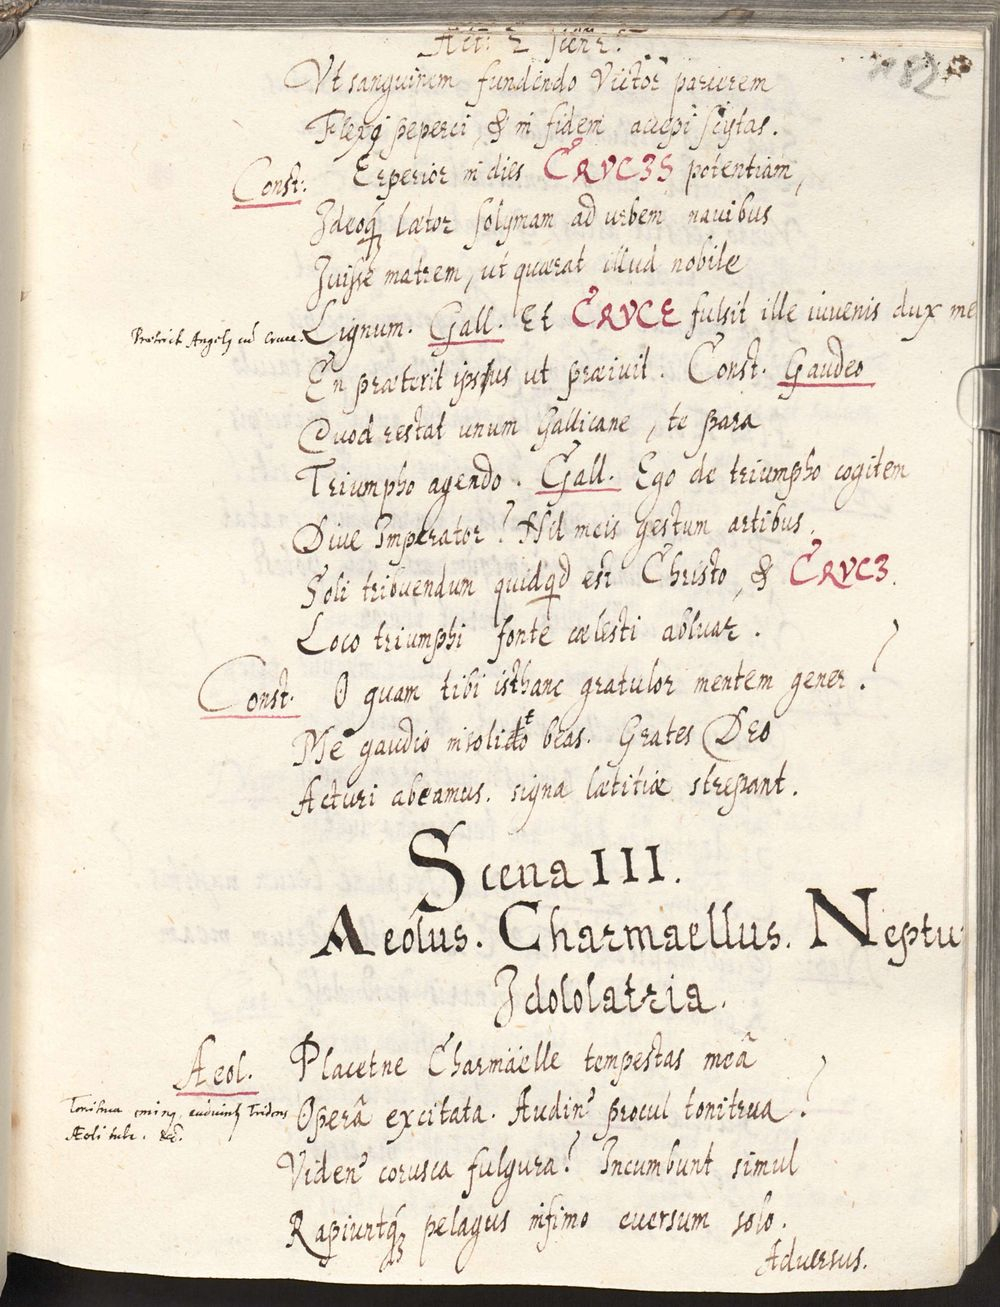 Act: 2 Scen 2.
182
Vt sanguinem fundendo Victor parcerem
Flexi peperci, & in fidem accepi scytas.
Const: Experior in dies CRVCIS potentiam,
Ideoq; lætor solymam ad urbem nauibus
Iuisse matrem, ut quærat illud nobile
Præterit Angelus cū Cruce. Lignum. Gall. Et CRVCE fulsit ille iuuenis dux me
En præterit ipsus ut præiuit. Const. Gaudeo
Quod restat unum Gallicane, te para
Triumpho agendo. Gall. Ego de triumpho cogitem
Diue Imperator? Nil meis gestum artibus.
Soli tribuendum quidqd est Christo, & CRVCI.
Loco triumphi fonte cœlesti abluar.
Const. O quam tibi isthanc gratulor mentem gener!
Me gaudio insolito beas. Grates Deo
Acturi abeamus. signa lætitiæ strepant.
Scena III.
Aeolus. Charmaellus. Neptu
Idololatria.
Aeol. Placetne Charmaëlle tempestas meâ
Tonitrua Tridens Operâ excitata. Audin' procul tonitrua?
Æoli &c. Viden' corusca fulgura? Incumbunt simul
Rapiuntq; pelagus infimo euersum solo.
Aduersus.